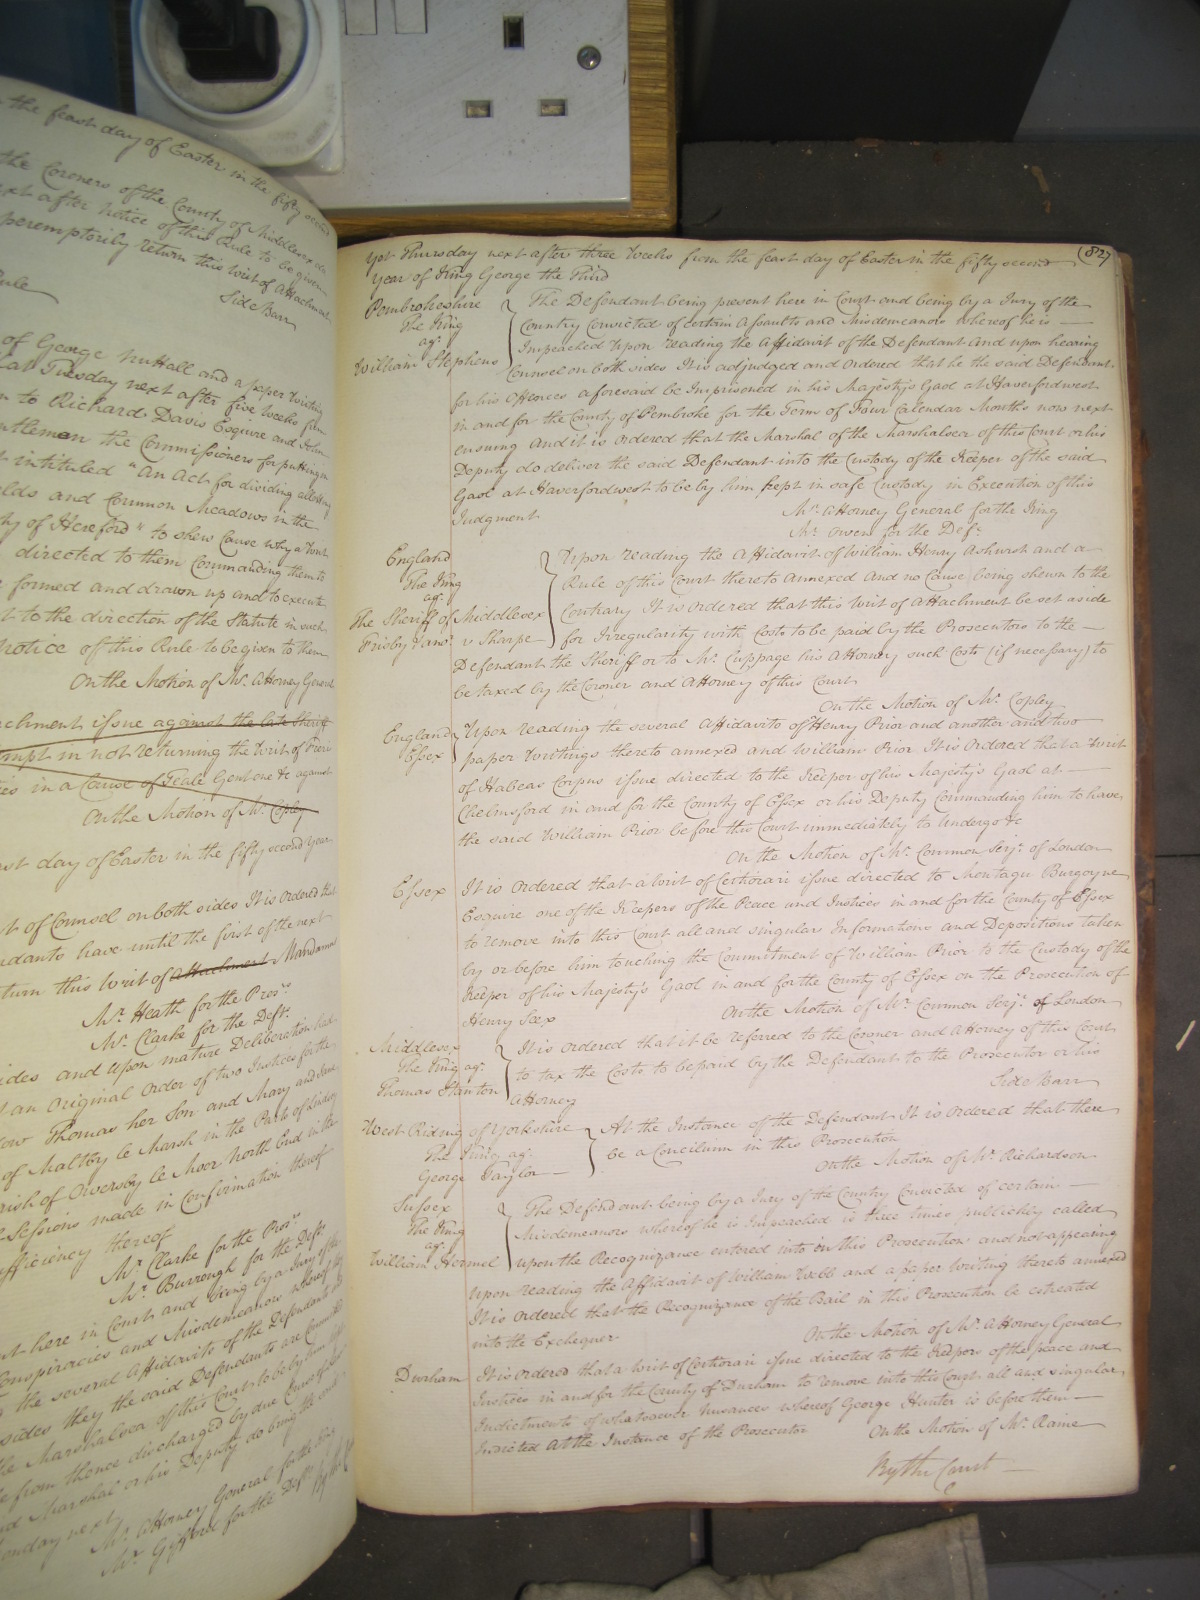 the feast day of Easter in the fifty second
the Coroners of the County of Middlesex do
next after notice of this Rule to be given
peremptorily return this writ of Attachment
Rule
Side Barr
of George Nuttall and a paper writing
at Tuesday next after five Weeks from
to Richard Davis Esquire and John
Gentlemen the Commissioners for putting in
intituled "An Act for dividing allotting
and Common Meadows in the
of Hereford" to shew Cause why a Writ
directed to them Commanding them to
formed and drawn up and to execute
to the direction of the Statute in such
Notice of this Rule to be given to them
On the Motion of Mr. Attorney General
issue against the late Sheriff
in not returning the Writ of Fieri
in a Cause of Teale Gent one &c against
On the Motion of Mr. Copley
day of Easter in the fifty second Year
of Counsel on both sides It is Ordered that
have until the first of the next
return this Writ of Attachment Mandamus
Mr. Heath for the Pros.rs
Mr. Clarke for the Deft.
sides and upon mature Deliberation had
an Original Order of two Justices for the
Thomas her Son and Mary and Jane
of Maltby le Marsh in the Parts of Lindsey
of Owersby le Moor North End in the
Sessions made in Confirmation thereof
thereof
Mr. Clarke for the Pros.rs
Mr. Burrough for the Deft.
here in Court and being by a Jury of the
Conspiracies and Misdemeanors whereof they
the several Affidavits of the Defendants
sides they the said Defendants are Committed
Marshalsea of this Court to be by him kept
from thence discharged by due Course of Law
Marshal or his Deputy do bring the said
next
Mr. Attorney General for the King
Mr. Gifford for the Defts.
827
Yet Thursday next after three Weeks from the feast day of Easter in the fifty second
Year of King George the Third
Pembrokeshire
The King
agt.
William Stephens
The Defendant being present here in Court and being by a Jury of the
Country Convicted of certain Assaults and Misdemeanors whereof he is
Impeached Upon reading the Affidavit of the Defendant And upon hearing
Counsel on both sides It is adjudged and Ordered that he the said Defendant
for his Offences aforesaid be Imprisoned in his Majesty's Gaol at Haverfordwest
in and for the County of Pembroke for the Term of Four Calendar Months now next
ensuing And it is Ordered that the Marshal of the Marshalsea of this Court or his
Deputy do deliver the said Defendant into the Custody of the Keeper of the said
Gaol at Haverfordwest to be by him kept in safe Custody in Execution of this
Judgment
Mr. Attorney General for the King
Mr. Owen for the Deft.
England
The King
agt.
The Sheriff of Middlesex
Frisby v Sharpe
Upon reading the Affidavit of William Henry Ashurst and a
Rule of this Court thereto Annexed And no Cause being shewn to the
Contrary It is Ordered that this Writ of Attachment be set aside
for Irregularity with Costs to be paid by the Prosecutors to the
Defendant the Sheriff or to Mr. Cuppage his Attorney such Costs (if necessary) to
be taxed by the Coroner and Attorney of this Court
On the Motion of Mr. Copley
England
Essex
Upon reading the several Affidavits of Henry Prior and another and two
paper Writings thereto annexed and William Prior It is Ordered that a Writ
of Habeas Corpus issue directed to the Keeper of his Majesty's Gaol at
Chelmsford in and for the County of Essex or his Deputy Commanding him to have
the said William Prior before this Court immediately to Undergo &c
On the Motion of Mr. Common Serjt. of London
Essex
It is Ordered that a Writ of Certiorari issue directed to Montagu Burgoyne
Esquire one of the Keepers of the Peace and Justices in and for the County of Essex
to remove into this Court all and singular Informations and Depositions taken
by or before him touching the Commitment of William Prior to the Custody of the
Keeper of his Majesty's Gaol in and for the County of Essex on the Prosecution of
Henry Sex
On the Motion of Mr. Common Serjt. of London
Middlesex
The King agt.
Thomas Stanton
It is Ordered that it be referred to the Coroner and Attorney of this Court
to tax the Costs to be paid by the Defendant to the Prosecutor or his
Attorney
Side Barr
West Riding of Yorkshire
The King agt.
George Taylor
At the Instance of the Defendant It is Ordered that there
be a Concilium in this Prosecution
On the Motion of Mr. Richardson
Sussex
The King
agt.
William Hormel
The Defendant being by a Jury of the Country Convicted of certain
Misdemeanors whereof he is Impeached is three times publickly called
upon the Recognizance entered into in this Prosecution and not appearing
Upon reading the Affidavit of William Webb and a paper Writing thereto annexed
It is Ordered that the Recognizance of the Bail in this Prosecution be estreated
into the Exchequer
On the Motion of Mr. Attorney General
Durham
It is Ordered that a Writ of Certiorari issue directed to the Keepers of the peace and
Justices in and for the County of Durham to remove into this Court all and singular
Indictments of whatsoever Nusances whereof George Hunter is before them
Indicted At the Instance of the Prosecutor
On the Motion of Mr. Raine
By the Court